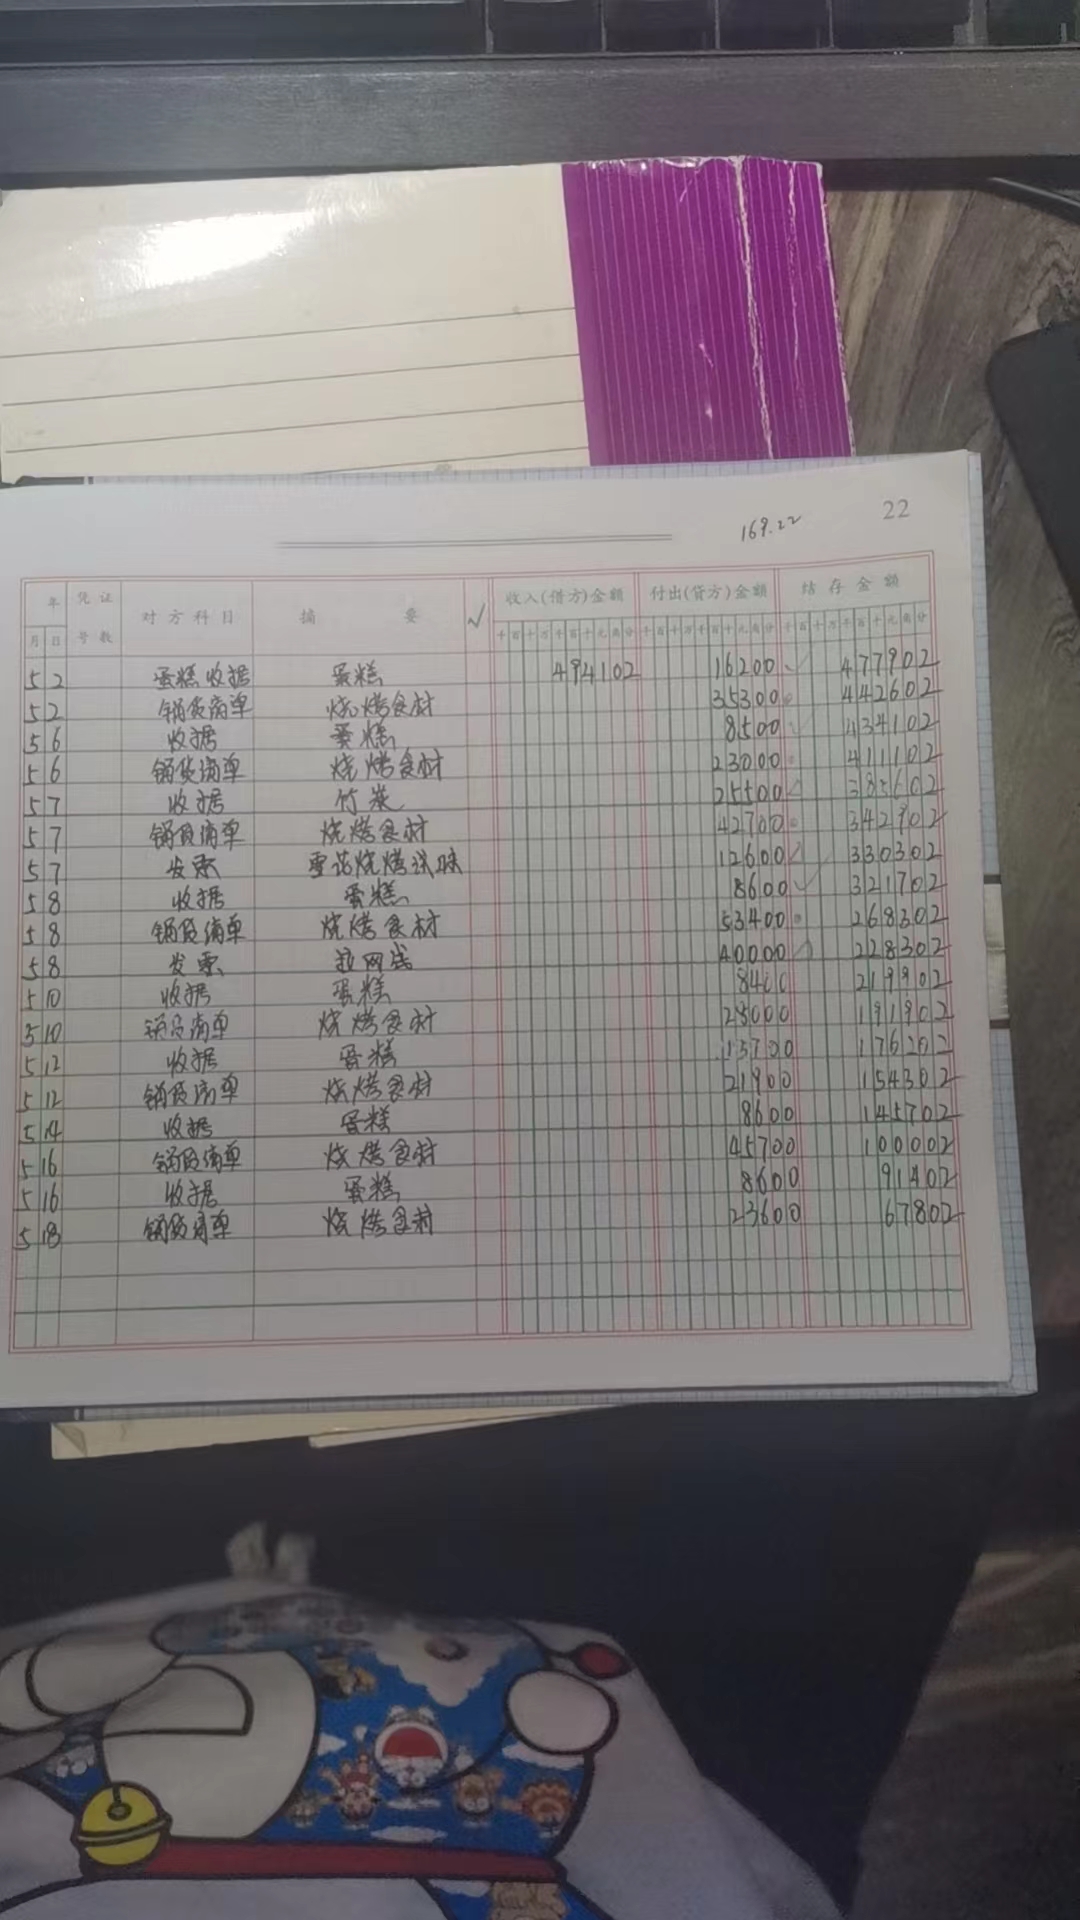 22
169.22
年 凭证 对方科目 摘要 √ 收入(借方)金额 付出(贷方)金额 结存金额
月 日 号数 千百十万千百十元角分 千百十万千百十元角分 千百十万千百十元角分
5 2 蛋糕收据 蛋糕 494102 16200 477902
5 2 销货清单 烧烤食材 35300 442602
5 6 收据 蛋糕 8500 434102
5 6 销货清单 烧烤食材 23000 411102
5 7 收据 竹炭 25500 385602
5 7 销货清单 烧烤食材 42700 342902
5 7 发票 雪花烧烤 12600 330302
5 8 收据 蛋糕 8600 321702
5 8 销货清单 烧烤食材 53400 268302
5 8 发票 拉网线 40000 228302
5 10 收据 蛋糕 8400 219902
5 10 销货清单 烧烤食材 28000 191902
5 12 收据 蛋糕 15700 176202
5 12 销货清单 烧烤食材 21900 154302
5 14 收据 蛋糕 8600 145702
5 16 销货清单 烧烤食材 45700 100002
5 16 收据 蛋糕 8600 91402
5 18 销货清单 烧烤食材 23600 67802